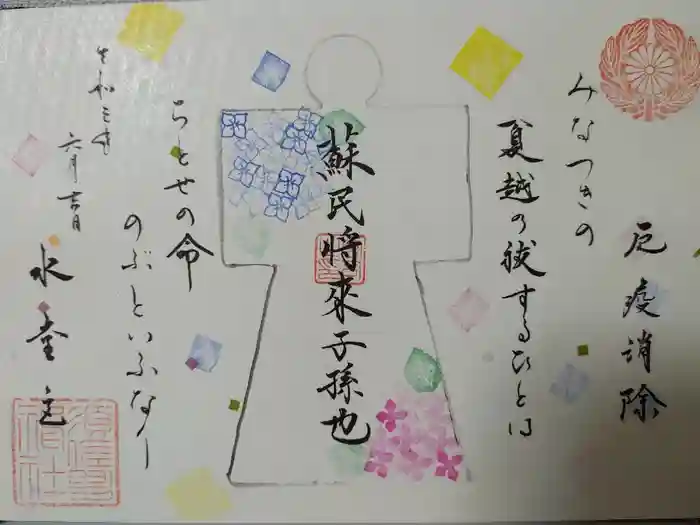 厄疫消除
みなつきの
夏越の祓するひとは
蘇民將來子孫也
ちとせの命
のぶといふなり
令和三年
六月吉日
水堂
須佐男
神社